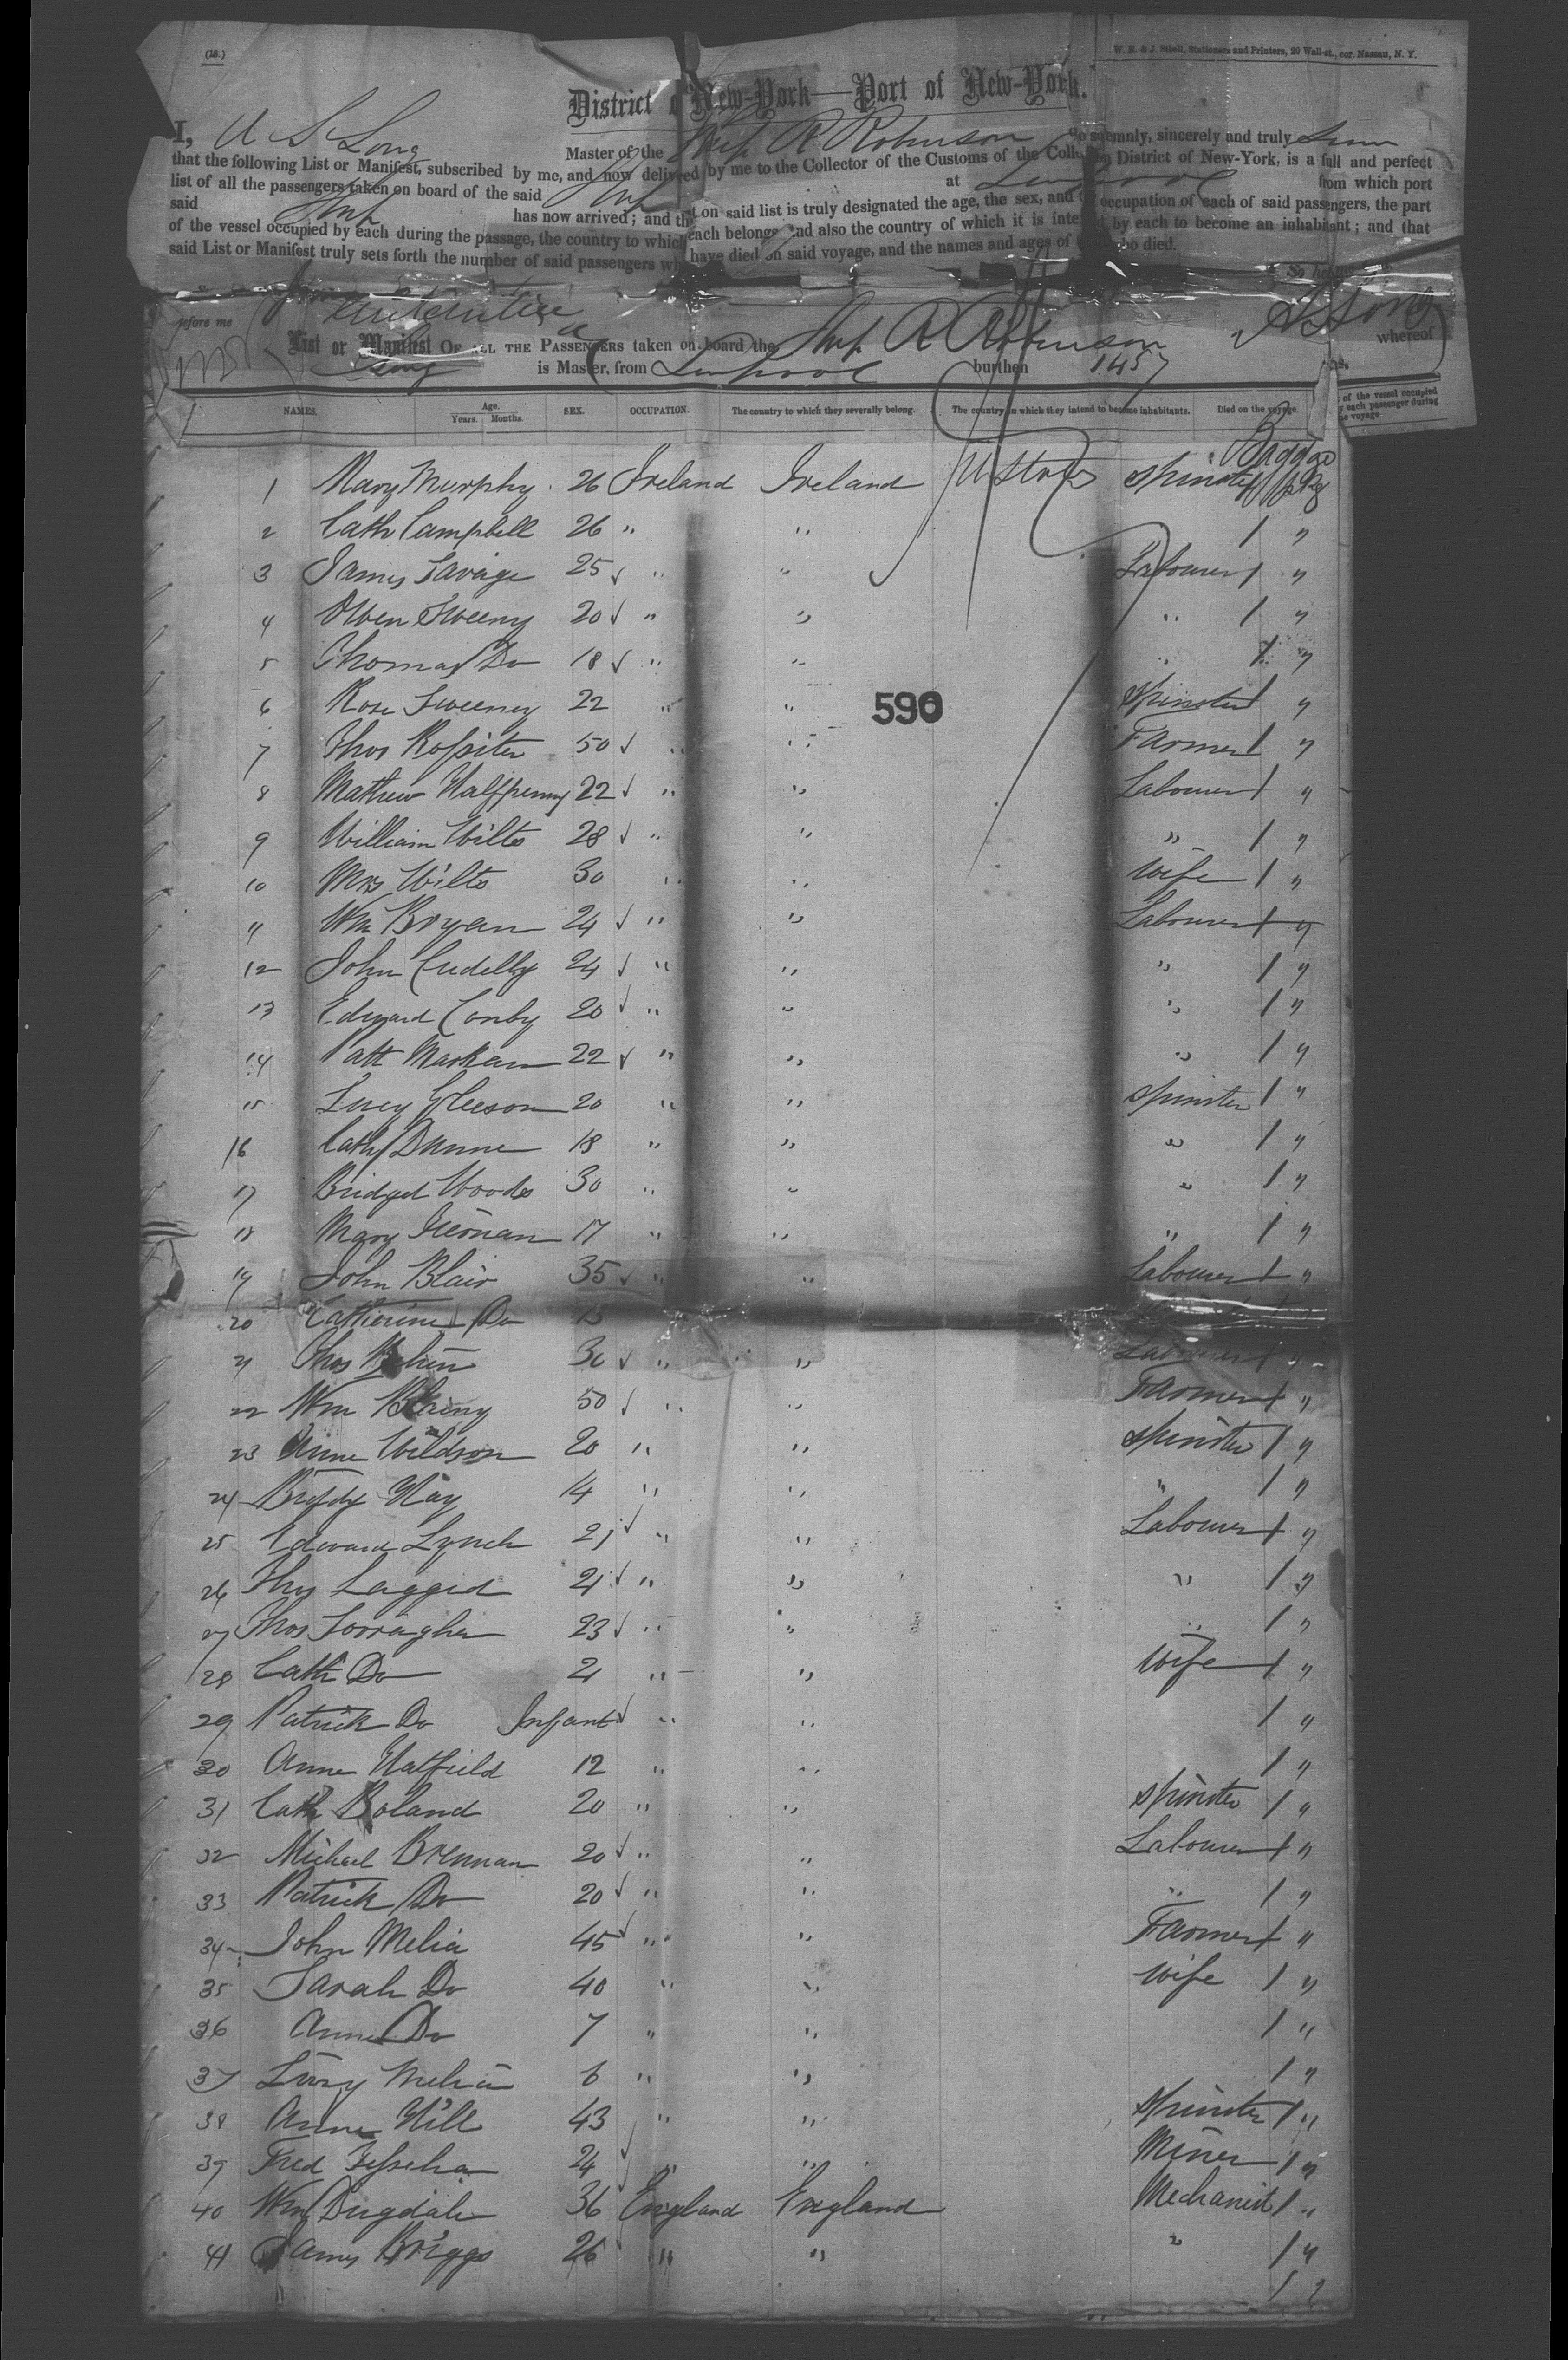 (18.)
W. E. & J. Sibell, Stationers and Printers, 20 Wall-st., cor. Nassau, N. Y.
District of New-York—Port of New-York.
I, A S Long Master of the Ship R Robinson do solemnly, sincerely and truly
that the following List or Manifest, subscribed by me, and now delivered by me to the Collector of the Customs of the Collection District of New-York, is a full and perfect
list of all the passengers taken on board of the said Ship at Liverpool from which port
said Ship has now arrived; and that on said list is truly designated the age, the sex, and occupation of each of said passengers, the part
of the vessel occupied by each during the passage, the country to which each belongs and also the country of which it is intended by each to become an inhabitant; and that
said List or Manifest truly sets forth the number of said passengers who have died on said voyage, and the names and ages of who died.
So help
before me
List or Manifest OF ALL THE PASSENGERS taken on board the Ship R Robinson whereof
Long is Master, from Liverpool burthen 1457
NAMES. Age. Years. Months. SEX. OCCUPATION. The country to which they severally belong. The country in which they intend to become inhabitants. Died on the voyage. of the vessel occupied by each passenger during voyage
Baggage
1 Mary Murphy 26 Ireland Ireland U States Spinster 1 pkg
2 Cath Campbell 26 " " 1 "
3 James Savage 25 " " Labourer 1 "
4 Owen Sweeny 20 " " " 1 "
5 Thomas Do 18 " " " 1 "
6 Rose Sweeney 22 " " Spinster 1 "
590
7 Thos Rossiter 50 " " Farmer 1 "
8 Mathew Halfpenny 22 " " Labourer 1 "
9 William Wilts 28 " " " 1 "
10 Mrs Wilts 30 " " Wife 1 "
11 Wm Bryan 24 " " Labourer 1 "
12 John Cudelly 24 " " " 1 "
13 Edward Conby 20 " " " 1 "
14 Patt Markam 22 " " " 1 "
15 Lucy Gleeson 20 " " Spinster 1 "
16 Cath Dunne 18 " " " 1 "
17 Bridget Woods 30 " " " 1 "
18 Mary 17 " " " 1 "
19 John Blair 35 " " Labourer 1 "
20 Catherine Do 15
21 Thos 30 " " Labourer 1 "
22 Wm 50 " " Farmer 1 "
23 Anne Wildson 20 " " Spinster 1 "
24 Hay 14 " " " 1 "
25 Edward Lynch 21 " " Labourer 1 "
26 Thos Laggid 21 " " " 1 "
27 Thos 23 " " " 1 "
28 Cath Do 21 " " Wife 1 "
29 Patrick Do Infant " " 1 "
30 Anne Hatfield 12 " " 1 "
31 Cath Boland 20 " " Spinster 1 "
32 Michael Brennan 20 " " Labourer 1 "
33 Patrick Do 20 " " " 1 "
34 John Melia 45 " " Farmer 1 "
35 Sarah Do 40 " " Wife 1 "
36 Anne Do 7 " " 1 "
37 Melia 6 " " 1 "
38 Anne Hill 43 " " Spinster 1 "
39 Fred 24 " " Miner 1 "
40 Wm Dugdale 36 England England Mechanist 1 "
41 James Briggs 26 " " " 1 "